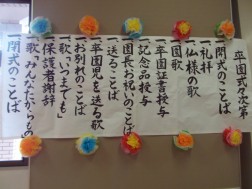 卒園式々次第
一開式のことば
一礼拝
一仏様の歌
一国歌
一卒園証書授与
一記念品授与
一園長お祝いのことば
一送ることば
一卒園児を送る歌
一お別れのことば
一歌「いつまでも」
一保護者謝辞
一歌「みんなたからもの」
一閉式のことば